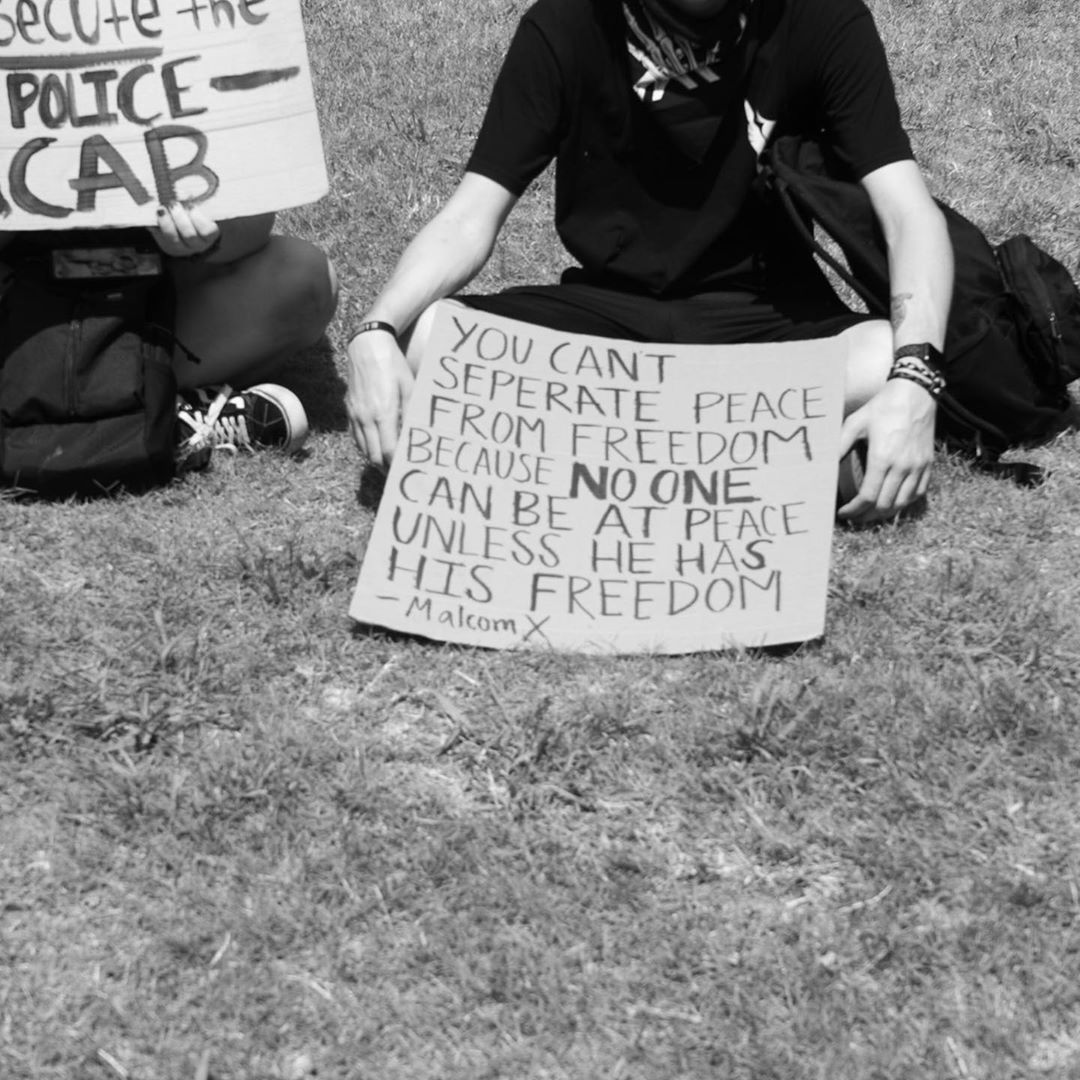 the
POLICE —
CAB
YOU CAN'T
SEPERATE PEACE
FROM FREEDOM
BECAUSE NO ONE
CAN BE AT PEACE
UNLESS HE HAS
HIS FREEDOM
- Malcom X